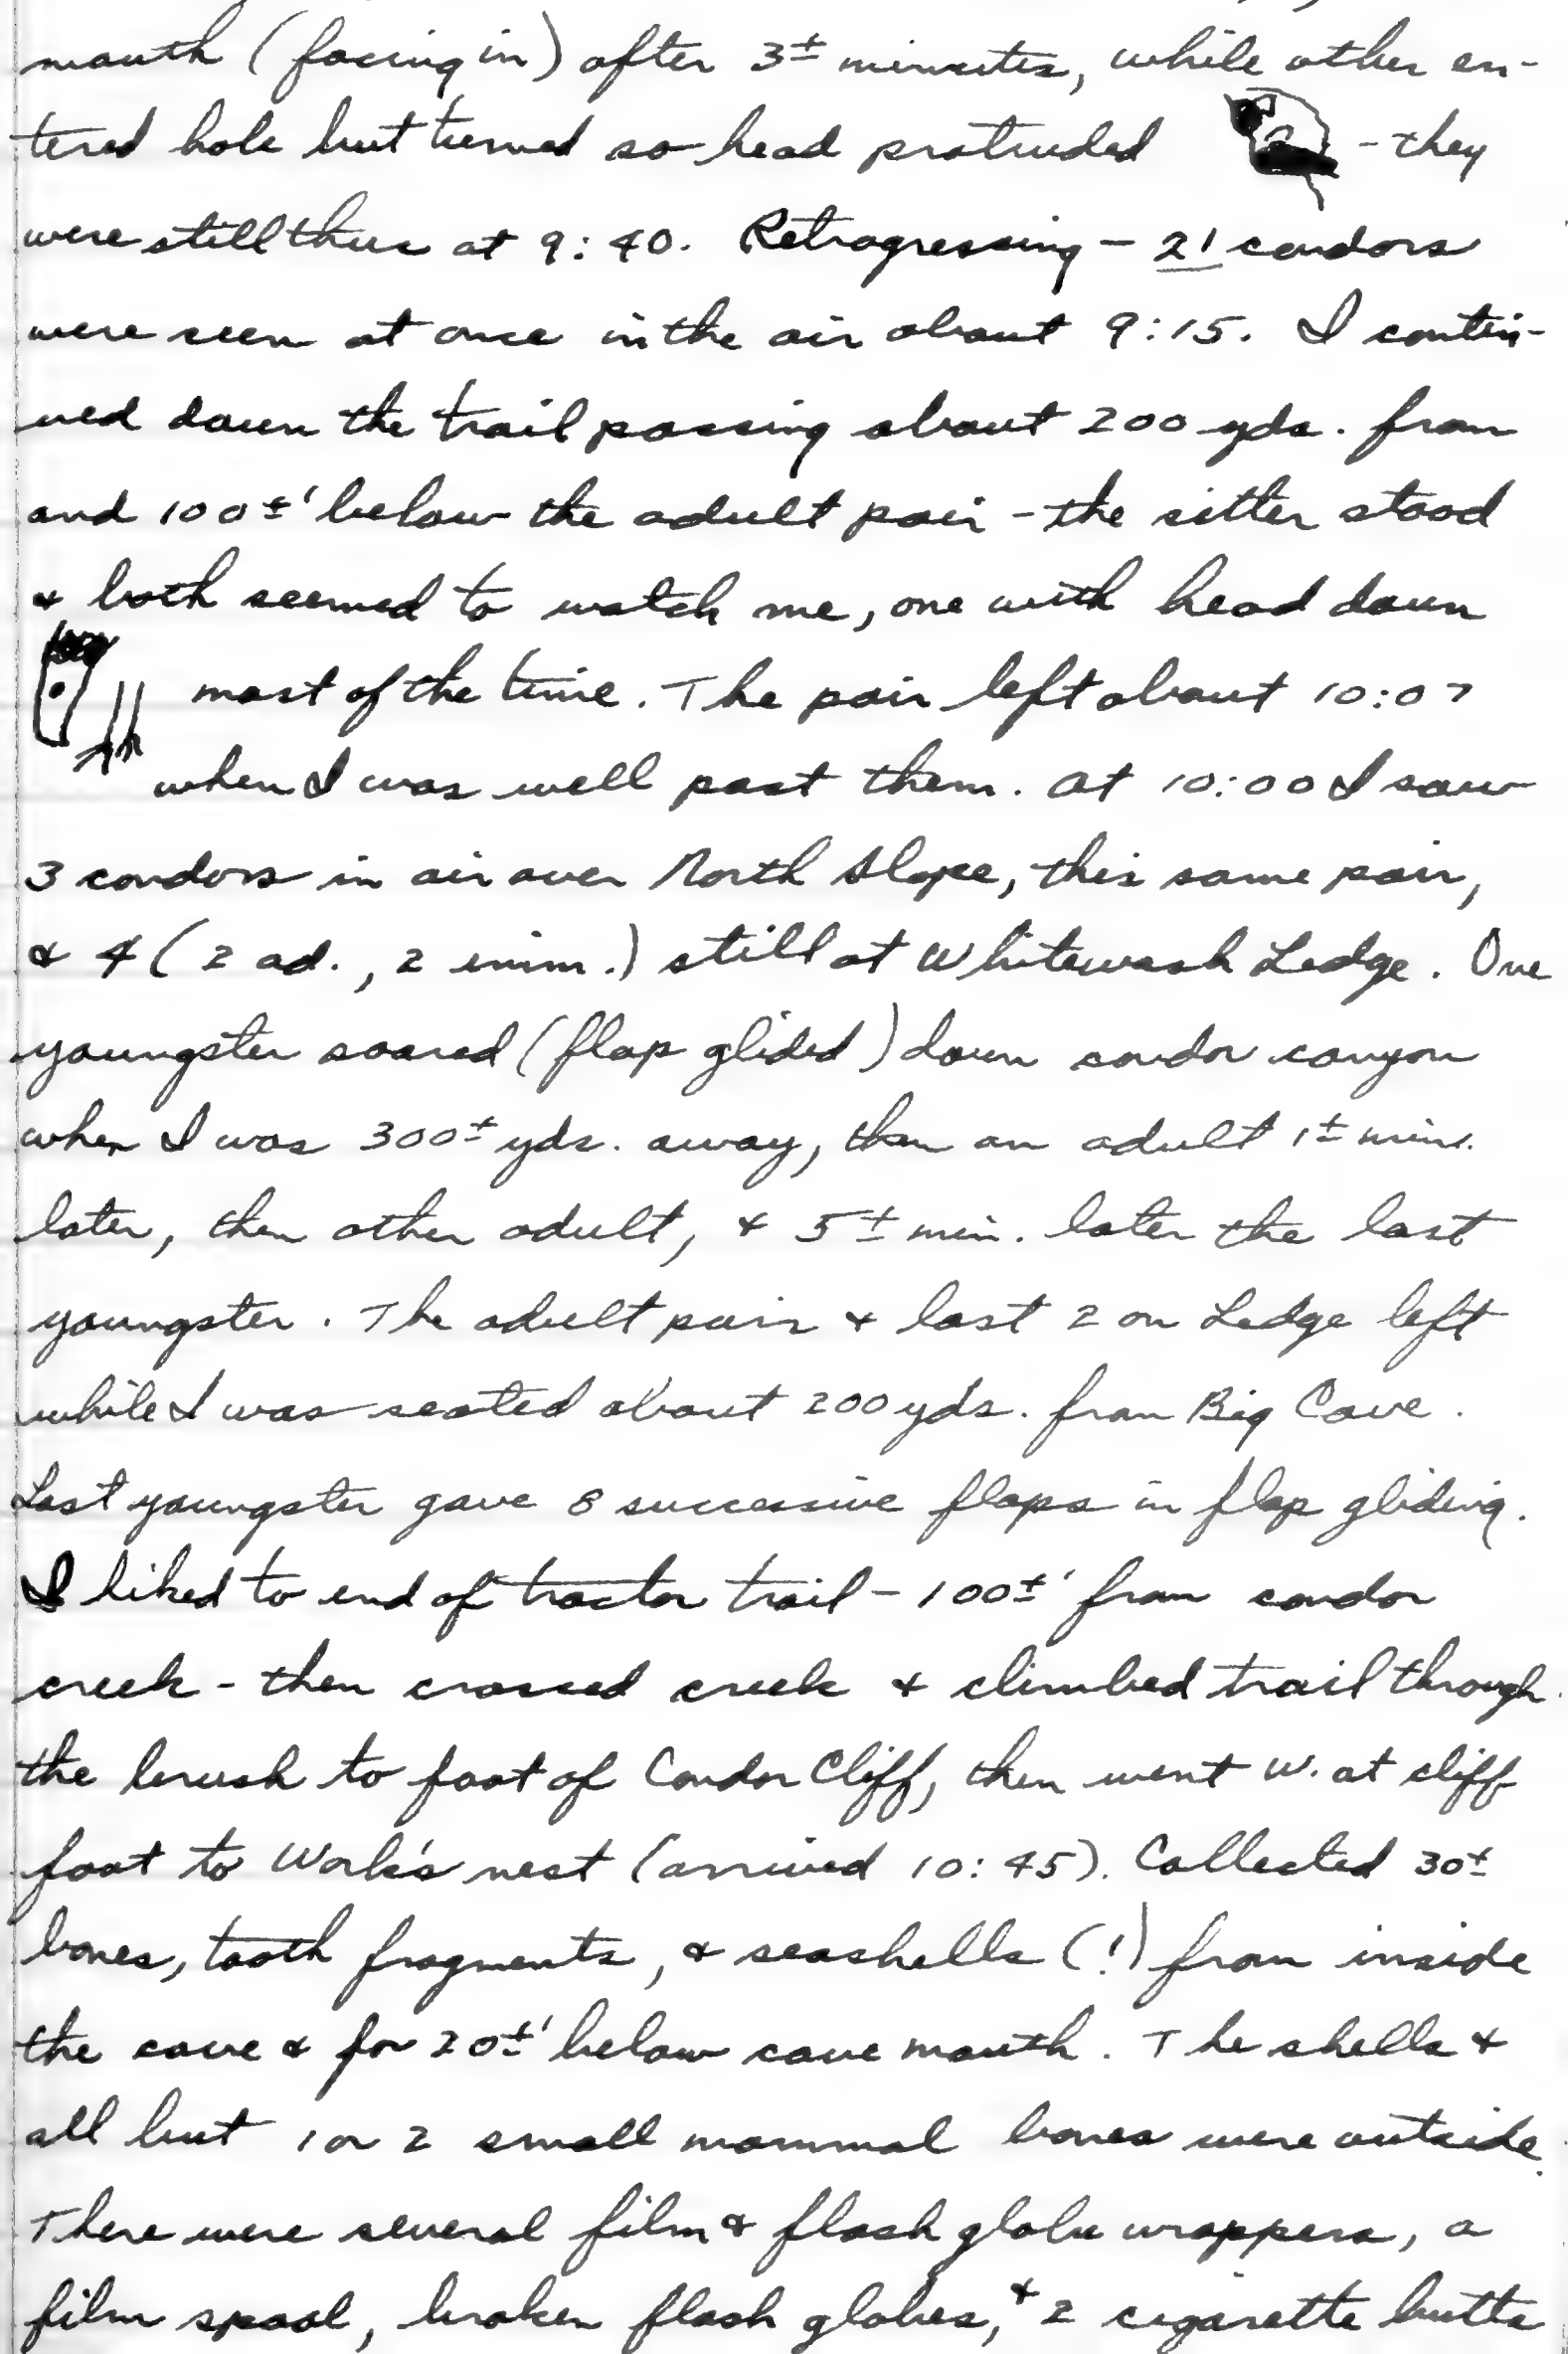 mouth (facing in) after 3± minutes, while other en-
tered hole but turned so head protruded - they
were still thus at 9:40. Retrogressing - 21 condors
were seen at once in the air about 9:15. I contin-
ued down the trail passing about 200 yds. from
and 100±' below the adult pair - the sitter stood
& both seemed to watch me, one with head down
most of the time. The pair left about 10:07
when I was well past them. At 10:00 I saw
3 condors in air over North Slope, this same pair,
& 4 (2 ad., 2 imm.) still at Whitewash Ledge. One
youngster soared (flap glided) down condor canyon
when I was 300± yds. away, then an adult 1± min.
later, then other adult, & 5± min. later the last
youngster. The adult pair & last 2 on Ledge left
while I was seated about 200 yds. from Big Cave.
Last youngster gave 8 successive flaps in flap gliding.
I hiked to end of tractor trail - 100±' from condor
creek - then crossed creek & climbed trail through
the brush to foot of Condor Cliff, then went W. at cliff
foot to Work's nest (arrived 10:45). Collected 30±
bones, tooth fragments, & seashells (!) from inside
the cave & for 20±' below cave mouth. The shells &
all but 1 or 2 small mammal bones were outside.
There were several film & flash globe wrappers, a
film spool, broken flash globes, & 2 cigarette butts